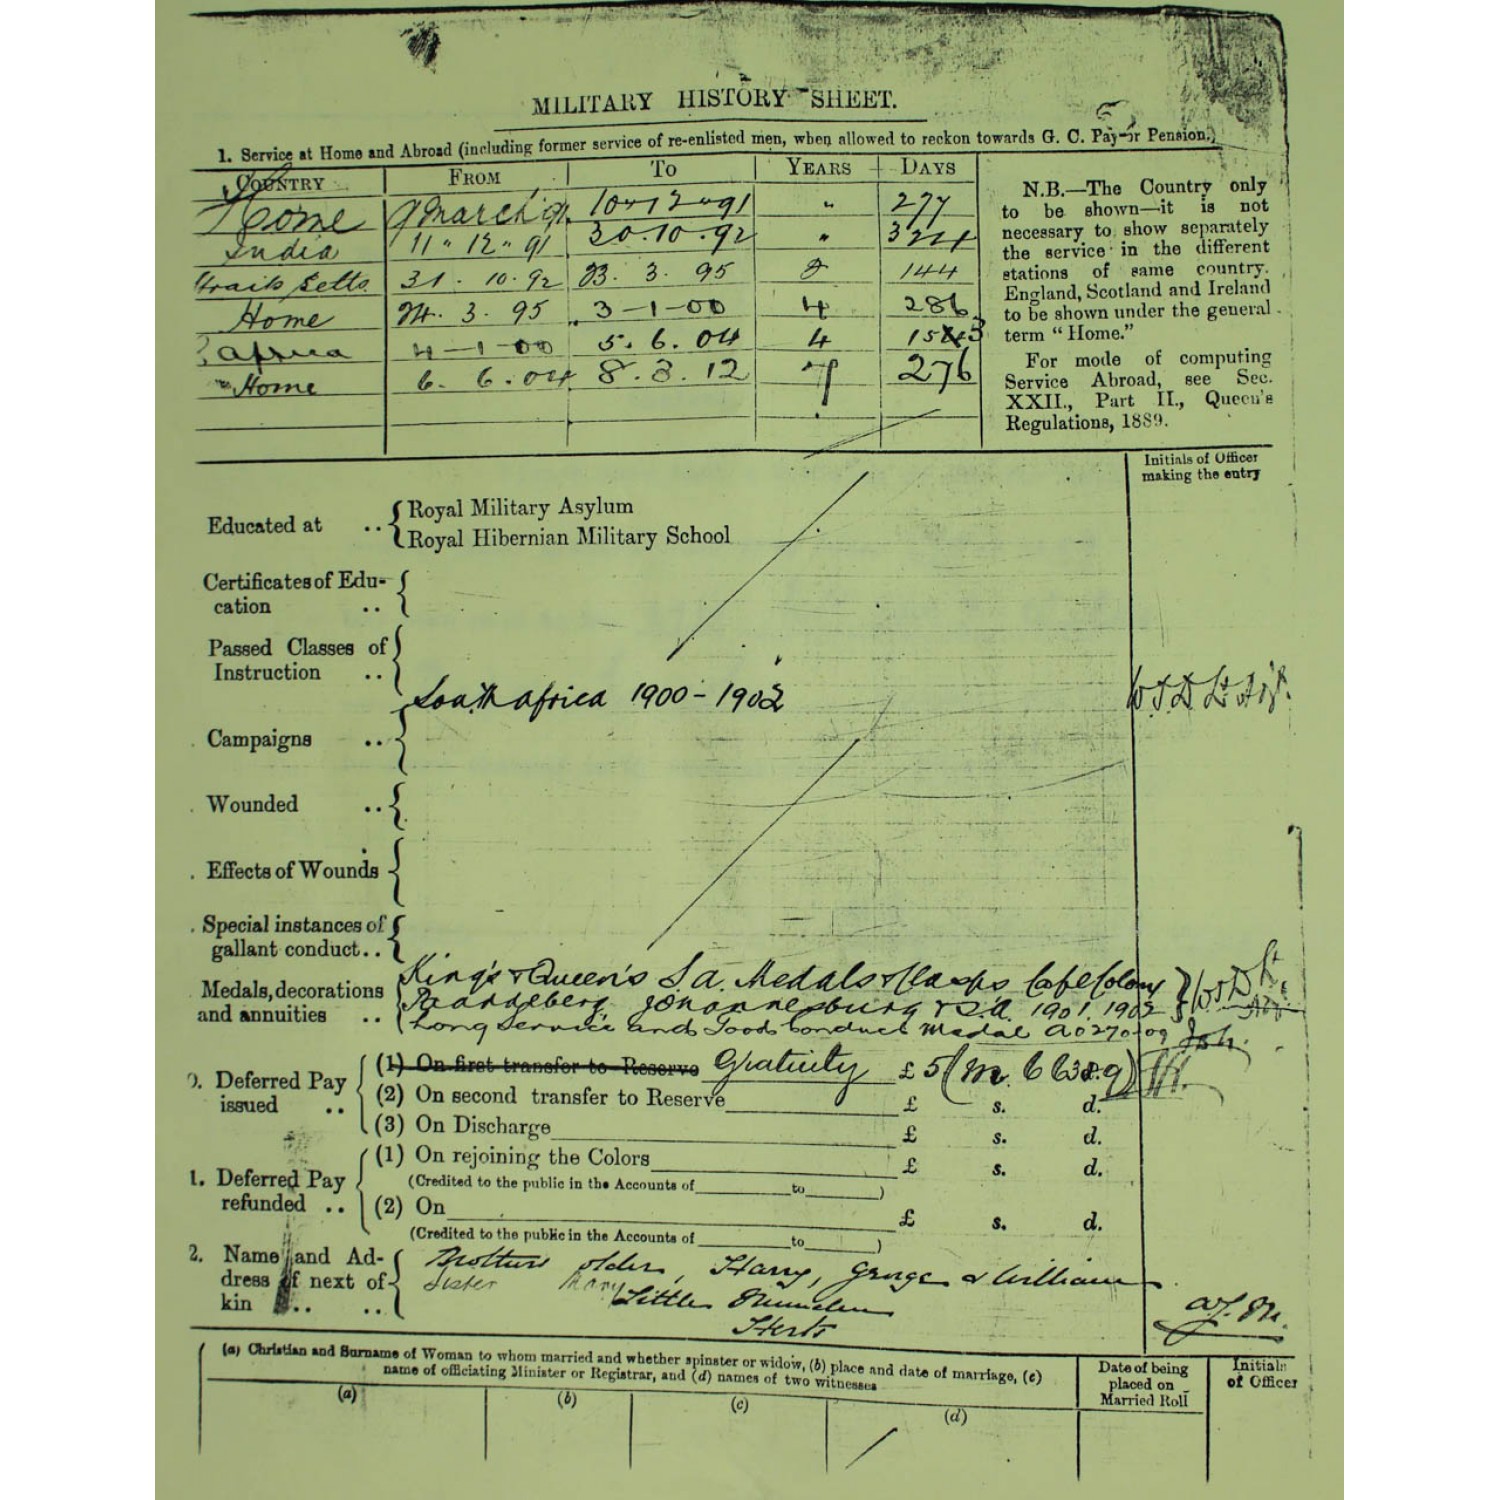 MILITARY HISTORY SHEET.
1. Service at Home and Abroad (including former service of re-enlisted men, when allowed to reckon towards G. C. Pay or Pension.)
COUNTRY FROM TO YEARS DAYS
Home 9 March 91 10-12-91 " 277
India 11" 12" 91 30.10.92 "
Straits Setts. 31. 10. 92 23. 3. 95 2 144
Home 24. 3. 95 3-1-00 4 286
S. Africa 4-1-00 5. 6. 04 4
Home 6. 6. 04 8. 3. 12 7 276
N.B.—The Country only
to be shown—it is not
necessary to show separately
the service in the different
stations of same country.
England, Scotland and Ireland
to be shown under the general
term "Home."
For mode of computing
Service Abroad, see Sec.
XXII., Part II., Queen's
Regulations, 1889.
Initials of Officer
making the entry
Educated at .. Royal Military Asylum
Royal Hibernian Military School
Certificates of Edu-
cation ..
Passed Classes of
Instruction ..
South Africa 1900-1902
Campaigns ..
Wounded ..
Effects of Wounds
Special instances of
gallant conduct..
Medals, decorations
and annuities ..
King's & Queen's S.A. Medals & Clasps Cape Colony
Paardeberg, Johannesburg & S.A. 1901. 1902
Long Service and Good Conduct Medal
Deferred Pay
issued ..
(1) On first transfer to Reserve Gratuity £5
(2) On second transfer to Reserve £ s. d.
(3) On Discharge £ s. d.
1. Deferred Pay
refunded ..
(1) On rejoining the Colors £ s. d.
(Credited to the public in the Accounts of to )
(2) On £ s. d.
(Credited to the public in the Accounts of to )
2. Name and Ad-
dress of next of
kin ..
Brothers older, Harry, George & William
Sister Mary
Little
Herts
(a) Christian and Surname of Woman to whom married and whether spinster or widow, (b) place and date of marriage, (c)
name of officiating Minister or Registrar, and (d) names of two witnesses
Date of being
placed on
Married Roll
Initials
of Officer
(a) (b) (c) (d)